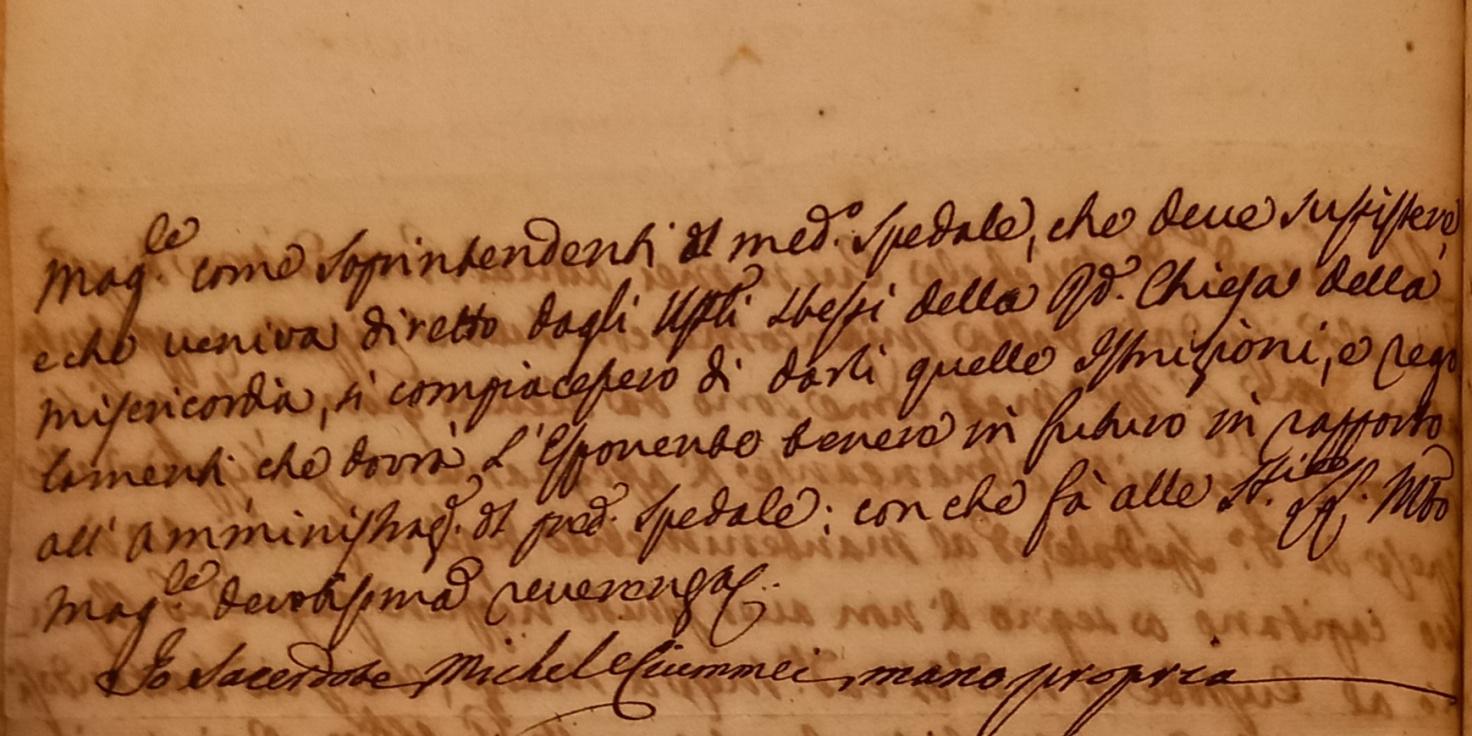 Mag.le come soprintendenti dl med.o Spedale, che deve sussistere,
e che veniva diretto dagli Uffli stessi della Pd.a Chiesa della
misericordia, si compiacessero di darli quelle Istruzioni, e rego
lamenti che dovrà l'Esponente tenere in futuro in rapporto
all'amministraz.e dl pred.o Spedale; con che fà alle SS. Mto
Mag.le devotissima reverenza.
Io Sacerdote Michel Ciummei mano propria